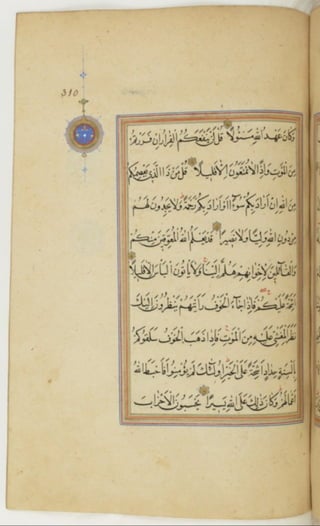 310
وَكَانَ عَهْدُ اللهِ مَسْئُولًا قُلْ لَنْ يَنْفَعَكُمُ الْفِرَارُ اِنْ فَرَرْتُمْ
مِنَ الْمَوْتِ وَاِذًا لَا تُمَتَّعُونَ اِلَّا قَلِيلًا قُلْ مَنْ ذَا الَّذِي يَعْصِمُكُمْ
مِنَ اللهِ اِنْ اَرَادَ بِكُمْ سُوءًا اَوْ اَرَادَ بِكُمْ رَحْمَةً وَلَا يَجِدُونَ لَهُمْ
مِنْ دُونِ اللهِ وَلِيًّا وَلَا نَصِيرًا قَدْ يَعْلَمُ اللهُ الْمُعَوِّقِينَ مِنْكُمْ
وَالْقَائِلِينَ لِاِخْوَانِهِمْ هَلُمَّ اِلَيْنَا وَلَا يَأْتُونَ الْبَأْسَ اِلَّا قَلِيلًا
اَشِحَّةً عَلَيْكُمْ فَاِذَا جَاءَ الْخَوْفُ رَاَيْتَهُمْ يَنْظُرُونَ اِلَيْكَ
نَظَرَ الْمَغْشِيِّ عَلَيْهِ مِنَ الْمَوْتِ فَاِذَا ذَهَبَ الْخَوْفُ سَلَقُوكُمْ
بِاَلْسِنَةٍ حِدَادٍ اَشِحَّةً عَلَى الْخَيْرِ اُولٰئِكَ لَمْ يُؤْمِنُوا فَاَحْبَطَ اللهُ
اَعْمَالَهُمْ وَكَانَ ذٰلِكَ عَلَى اللهِ يَسِيرًا يَحْسَبُونَ الْاَحْزَابَ